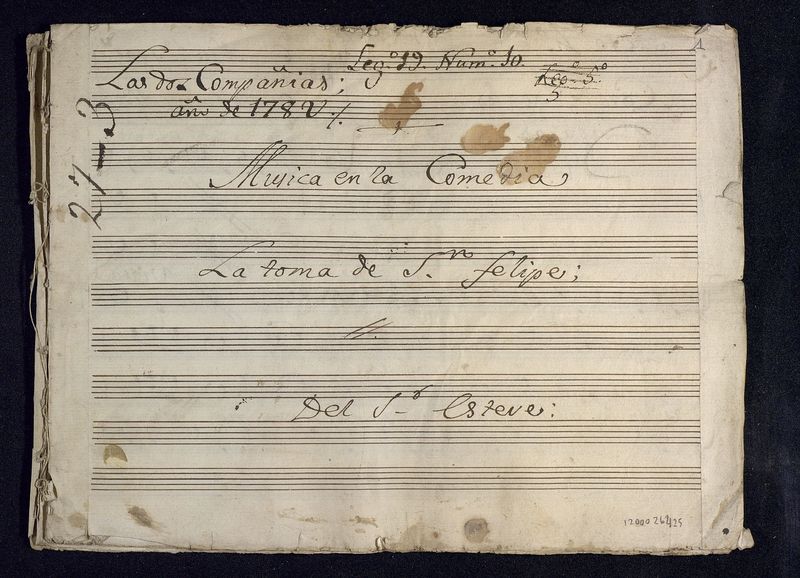 1
Leg.º 19. Num.º 10.
Leg.º 5.º
5
Las dos Compañias;
año de 1782 ./.
27-3
Musica en la Comedia
La toma de S.n felipe;
Del S.r Esteve:
1200026425